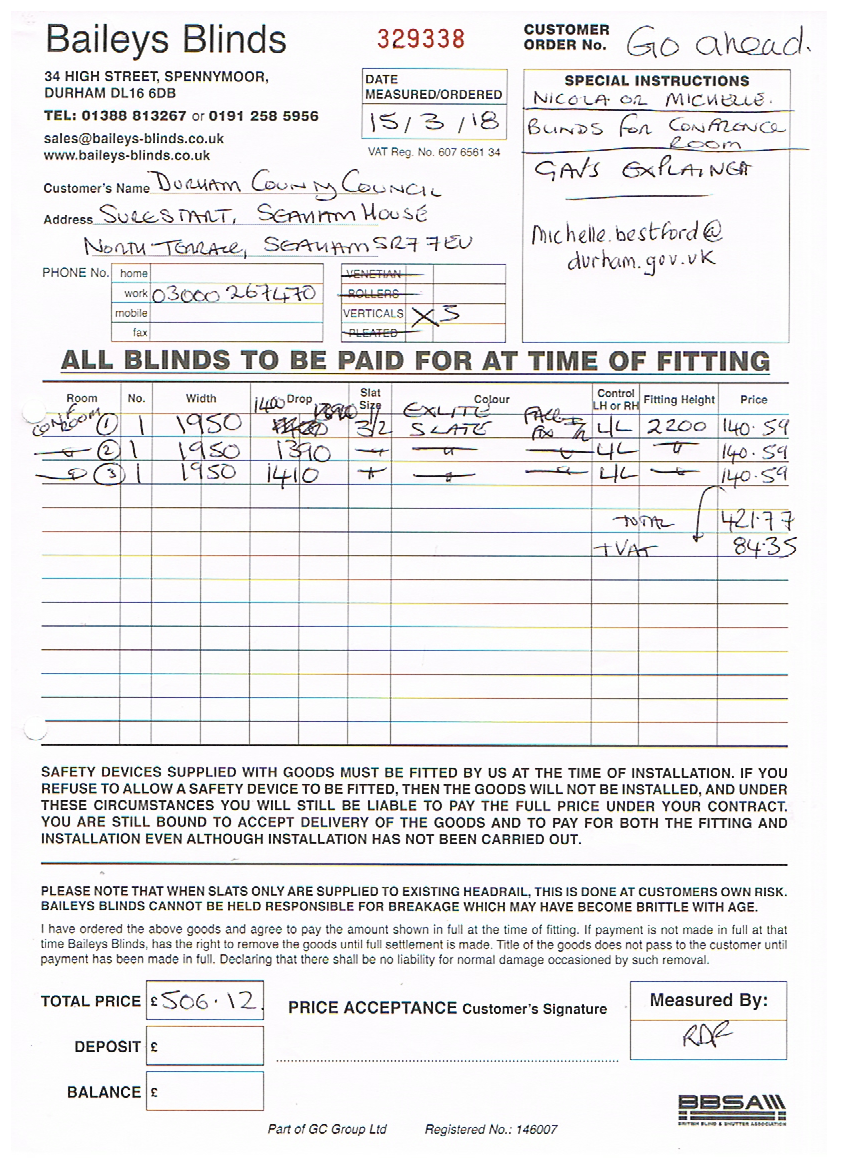 Baileys Blinds
34 HIGH STREET, SPENNYMOOR,
DURHAM DL16 6DB
TEL: 01388 813267 or 0191 258 5956
sales@baileys-blinds.co.uk
www.baileys-blinds.co.uk
329338
DATE
MEASURED/ORDERED
15/3/18
VAT Reg. No. 607 6561 34
CUSTOMER
ORDER No. Go ahead.
SPECIAL INSTRUCTIONS
NICOLA OR MICHELLE.
BLINDS FOR CONFERENCE
ROOM
GAVS EXPLAINED
Michelle.bestford@
durham.gov.uk
Customer's Name DURHAM COUNTY COUNCIL
Address SURESTART, SEAHAM HOUSE
NORTH TERRACE, SEAHAM SR7 7EU
PHONE No. home
work 03000 267470
mobile
fax
VENETIAN
ROLLERS
VERTICALS X 3
PLEATED
ALL BLINDS TO BE PAID FOR AT TIME OF FITTING
Room No. Width Drop Slat Size Colour Control LH or RH Fitting Height Price
1 1 1950 1400 3 1/2 EXLITE SLATE FACE FIX L/L 2200 140.59
2 1 1950 1390 L/L 140.59
3 1 1950 1410 L/L 140.59
TOTAL 421.77
+ VAT 84.35
SAFETY DEVICES SUPPLIED WITH GOODS MUST BE FITTED BY US AT THE TIME OF INSTALLATION. IF YOU
REFUSE TO ALLOW A SAFETY DEVICE TO BE FITTED, THEN THE GOODS WILL NOT BE INSTALLED, AND UNDER
THESE CIRCUMSTANCES YOU WILL STILL BE LIABLE TO PAY THE FULL PRICE UNDER YOUR CONTRACT.
YOU ARE STILL BOUND TO ACCEPT DELIVERY OF THE GOODS AND TO PAY FOR BOTH THE FITTING AND
INSTALLATION EVEN ALTHOUGH INSTALLATION HAS NOT BEEN CARRIED OUT.
PLEASE NOTE THAT WHEN SLATS ONLY ARE SUPPLIED TO EXISTING HEADRAIL, THIS IS DONE AT CUSTOMERS OWN RISK.
BAILEYS BLINDS CANNOT BE HELD RESPONSIBLE FOR BREAKAGE WHICH MAY HAVE BECOME BRITTLE WITH AGE.
I have ordered the above goods and agree to pay the amount shown in full at the time of fitting. If payment is not made in full at that
time Baileys Blinds, has the right to remove the goods until full settlement is made. Title of the goods does not pass to the customer until
payment has been made in full. Declaring that there shall be no liability for normal damage occasioned by such removal.
TOTAL PRICE £ 506.12
DEPOSIT £
BALANCE £
PRICE ACCEPTANCE Customer's Signature
Measured By:
RDF
BBSA
BRITISH BLIND & SHUTTER ASSOCIATION
Part of GC Group Ltd Registered No.: 146007